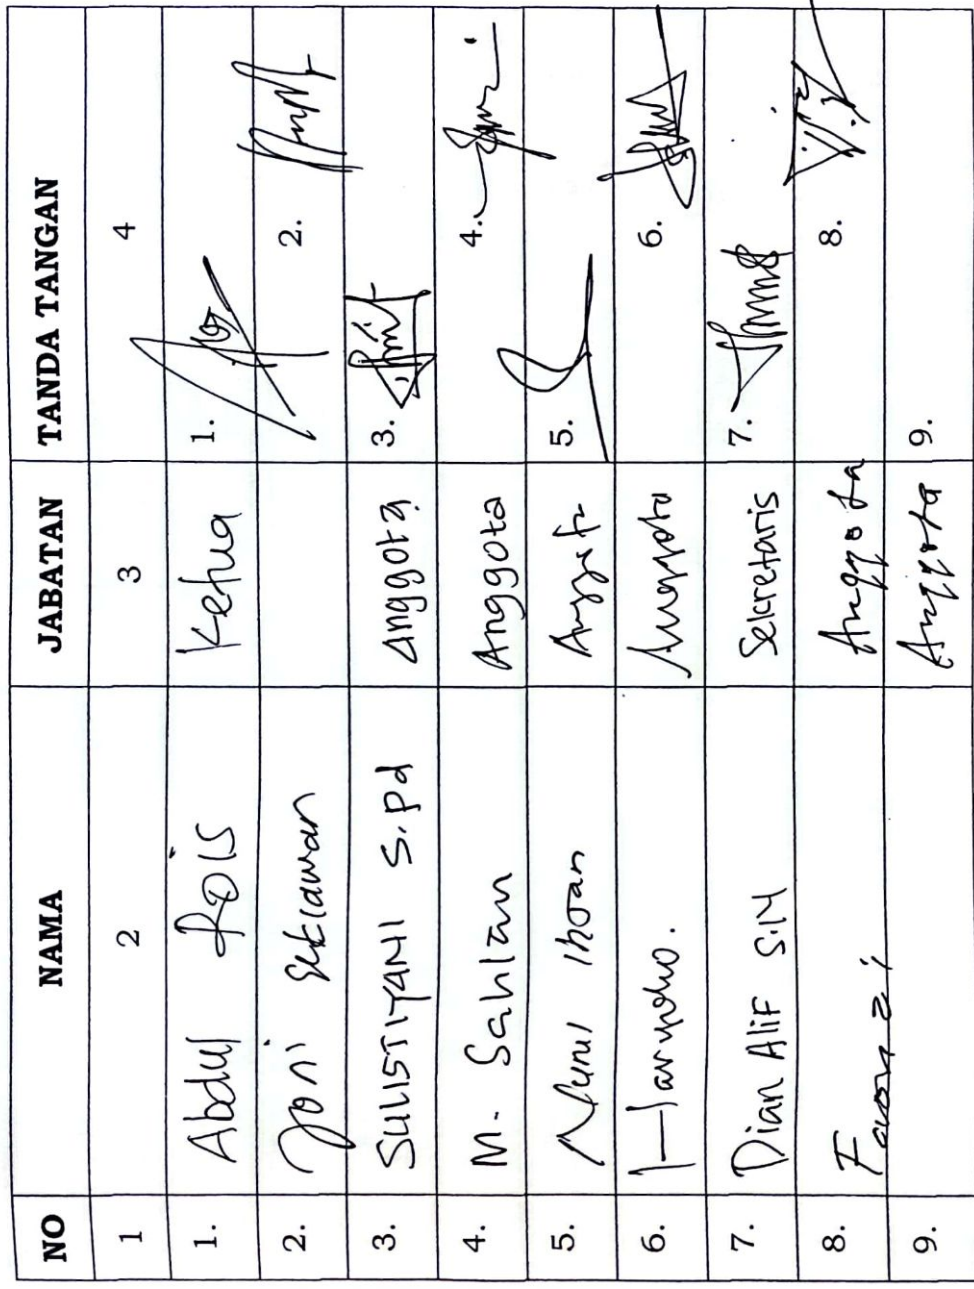 NO NAMA JABATAN TANDA TANGAN
1 2 3 4
1. Abdul Rois Ketua 1.
2. Joni Setiawan 2.
3. SULISTIYANI S.Pd Anggota 3.
4. M. Sahlan Anggota 4.
5. Nurul Ihsan Anggota 5.
6. Haryoko. Anggota 6.
7. Dian Alif S.M Sekretaris 7.
8. Fauzi Anggota 8.
9. Anggota 9.